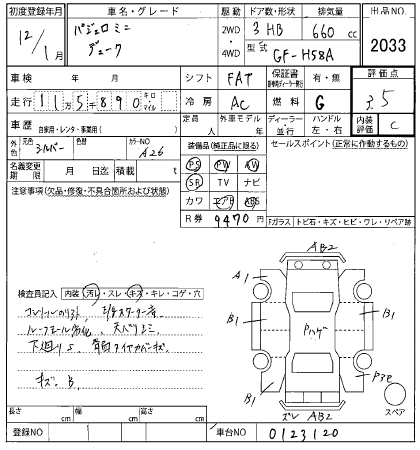 初度登録年月 車名・グレード 駆動 ドア数・形状 排気量 出品NO.
12/1月 パジェロミニ デューク 2WD・4WD 3 HB 660 cc 2033
型式 GF-H58A
車検 年 月 シフト FAT 保証書 有・無 評価点
走行 11万5千890 キロ マイル 冷房 AC 燃料 G 3.5
車歴 自家用・レンタ・事業用( ) 定員 人 外車モデル 年 ディーラー・並行 ハンドル 左・右 内装評価 C
外色 元色 シルバー 色替 カラーNO A26 装備品(純正品に限る) セールスポイント(正常に作動するもの)
名義変更期限 月 日迄 積載 t PS PW AW
注意事項(欠品・修復・不具合箇所および状態) SR TV ナビ
カワ エアB ABS
R券 9470円 Fガラス トビ石・キズ・ヒビ・ワレ・リペア跡
AB2
A1
検査員記入 内装 汚レ・スレ・キズ・キレ・コゲ・穴
B1 Pハゲ B1
下廻りS
キズ B
B1 P3e
ズレ AB2 スペア
長さ cm 幅 cm 高さ cm
登録NO 車台NO 0123120